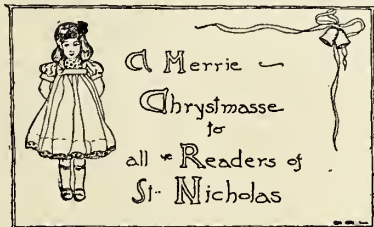 A Merrie
Chrystmasse
to
all yᵉ Readers of
St. Nicholas